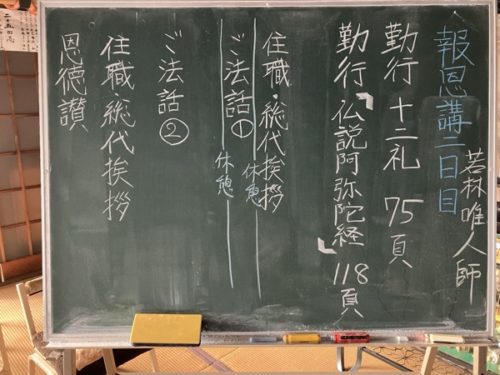 報恩講二日目
若林唯人師
勤行 十二礼 75頁
勤行『仏説阿弥陀経』118頁
住職・総代挨拶
休憩
ご法話①
休憩
ご法話②
住職・総代挨拶
恩徳讃